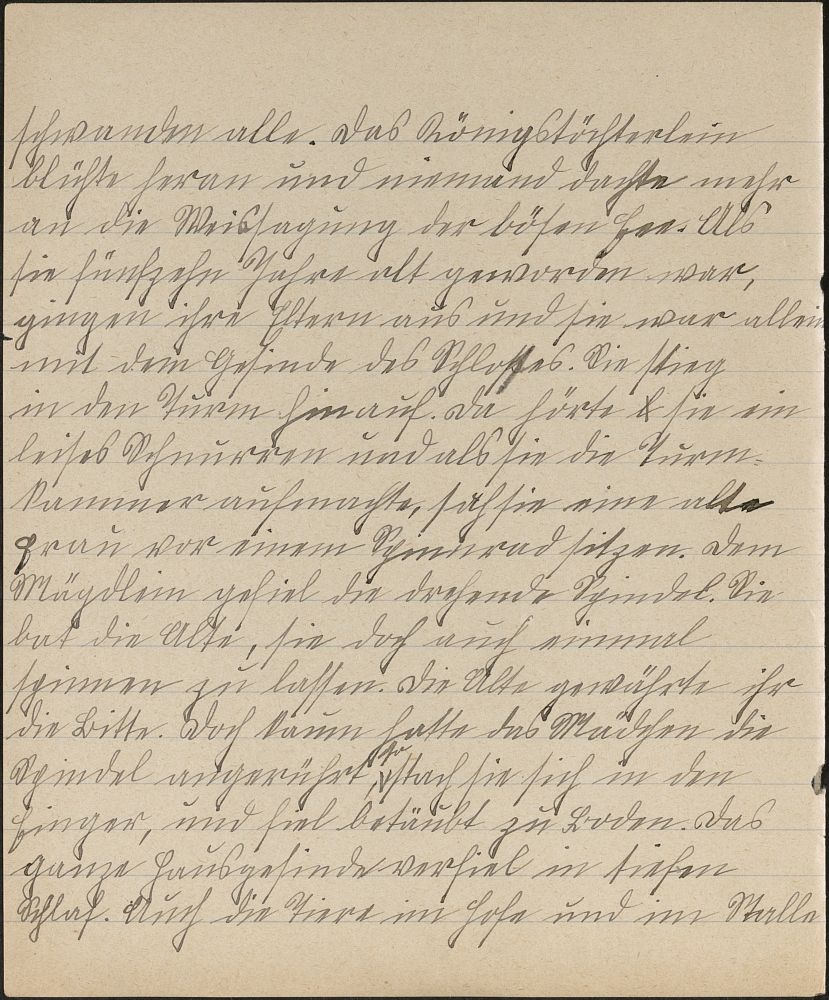 schwanden alle. Das Königstöchterlein
blühte heran und niemand dachte mehr
an die Weissagung der bösen Fee. Als
sie fünfzehn Jahre alt geworden war,
gingen ihre Eltern aus und sie war allein
mit dem Gesinde des Schlosses. Sie stieg
in den Turm hinauf. Da hörte sie ein
leises Schnurren und als sie die Turm-
kammer aufmachte, sah sie eine alte
Frau vor einem Spinnrad sitzen. Dem
Mägdlein gefiel die drehende Spindel. Sie
bat die Alte, sie doch auch einmal
spinnen zu lassen. Die Alte gewährte ihr
die Bitte. Doch kaum hatte das Mädchen die
Spindel angerührt, so stach sie sich in den
Finger, und fiel betäubt zu Boden. Das
ganze Hausgesinde verfiel in tiefen
Schlaf. Auch die Tiere im Hofe und im Stalle